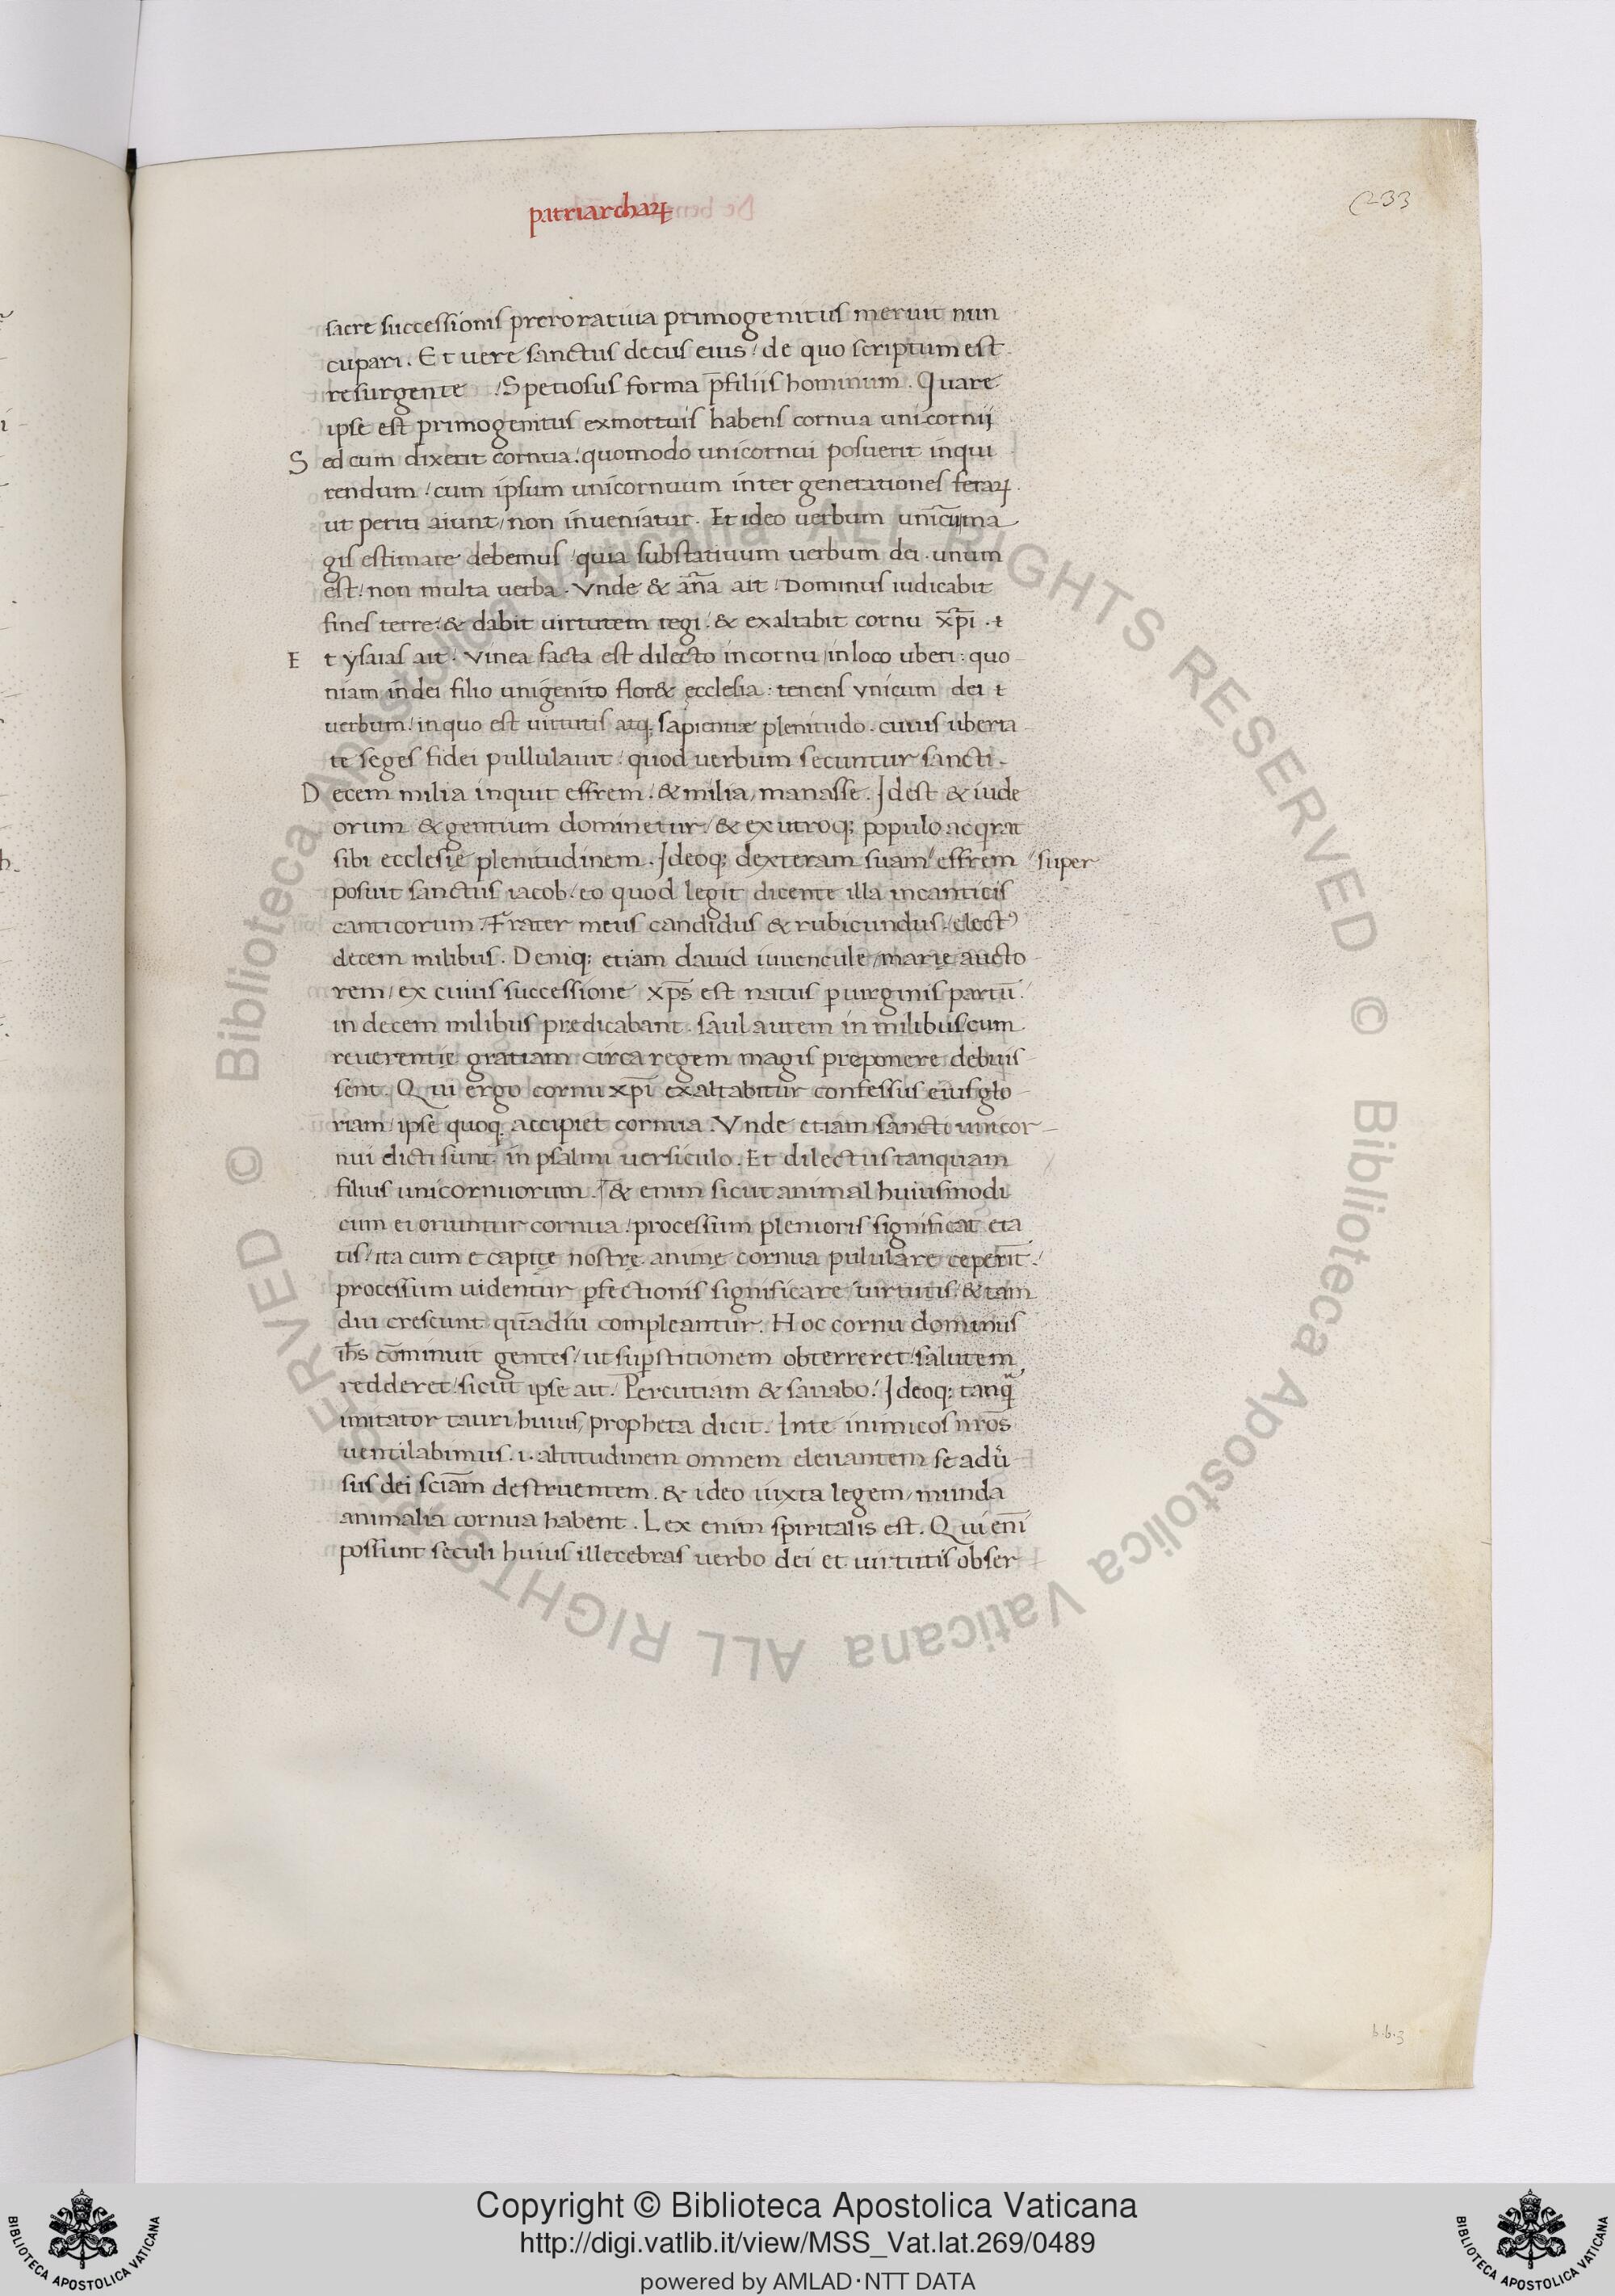 patriarchaꝝ
233
sacre successionis preroratiuia primogenitus meruit nun
cupari. Et uere sanctus decus eius / de quo scriptum est
resurgente / Spetiosus forma p̄ filiis hominum. Quare
ipse est primogenitus exmortuis habens cornua unicornij
Sed cum dixerit cornua / quomodo unicornui posuerit inqui
rendum / cum ipsum unicornuum inter generationes feraꝝ
ut periti aiunt / non inueniatur. Et ideo uerbum ma
gis estimare debemus / quia substatiuum uerbum dei. unum
est / non multa uerba. Vnde & an̄a ait / Dominus iudicabit
fines terre / & dabit uirtutem regi / & exaltabit cornu xp̄i. t
Et ysaias ait / Vinea facta est dilecto incornu / inloco uberi: quo
niam indei filio unigenito flor& ęcclesia: tenens vnicum dei t
uerbum / inquo est uirtutis atq; sapientiæ plenitudo. cuius uberta
te seges fidei pullulauit / quod uerbum secuntur sancti.
Decem milia inquit effrem. & milia, manasse. Idest & iude
orum & gentium dominetur / & ex utroq; populo acqrat
sibi ecclesię plenitudinem. Ideoq; dexteram suam / effrem / super
posuit sanctus iacob / eo quod legit dicente illa incanticis
canticorum. Frater meus candidus & rubicundus / elect᾿
decem milibus. Deniq; etiam dauid iuuencule / marię aucto
rem / ex cuius successione xp̄s est natus p uirginis partū.
in decem milibus predicabant. saul autem in milibus / cum
reuerentię gratiam circa regem magis preponere debuis
sent. Qui ergo cornu xp̄i exaltabitur confessus eius glo
riam / ipse quoq; accipiet cornua. Vnde etiam sancti unicor
nui dicti sunt in psalmi uersiculo. Et dilectus tanquam
filius unicornuorum. & enim sicut animal huiusmodi
cum ei oriuntur cornua / processum plenioris significat eta
tis / ita cum e capite nostrę animę cornua pululare ceperīt /
processum uidentur pfectionis significare / uirtutis / & tam
diu crescunt quādiu compleantur. Hoc cornu dominus
ih̄s cōminuit gentes / ut supstitionem obterreret / salutem
redderet / sicut ipse ait. Percutiam & sanabo / Ideoq; tanq̃
imitator tauri huius / propheta dicit. Inte inimicos nr̄os
uentilabimus. i. altitudinem omnem eleuantem se adū
sus dei sciām destruentem. & ideo iuxta legem / munda
animalia cornua habent. Lex enim spiritalis est. Qui enī
possunt seculi huius illecebras uerbo dei et uirtutis obser
b.b.3
© Biblioteca Apostolica Vaticana ALL RIGHTS RESERVED © Biblioteca Apostolica Vaticana ALL RIGHTS RESERVED
Copyright © Biblioteca Apostolica Vaticana
http://digi.vatlib.it/view/MSS_Vat.lat.269/0489
powered by AMLAD·NTT DATA
BIBLIOTECA APOSTOLICA VATICANA
BIBLIOTECA APOSTOLICA VATICANA